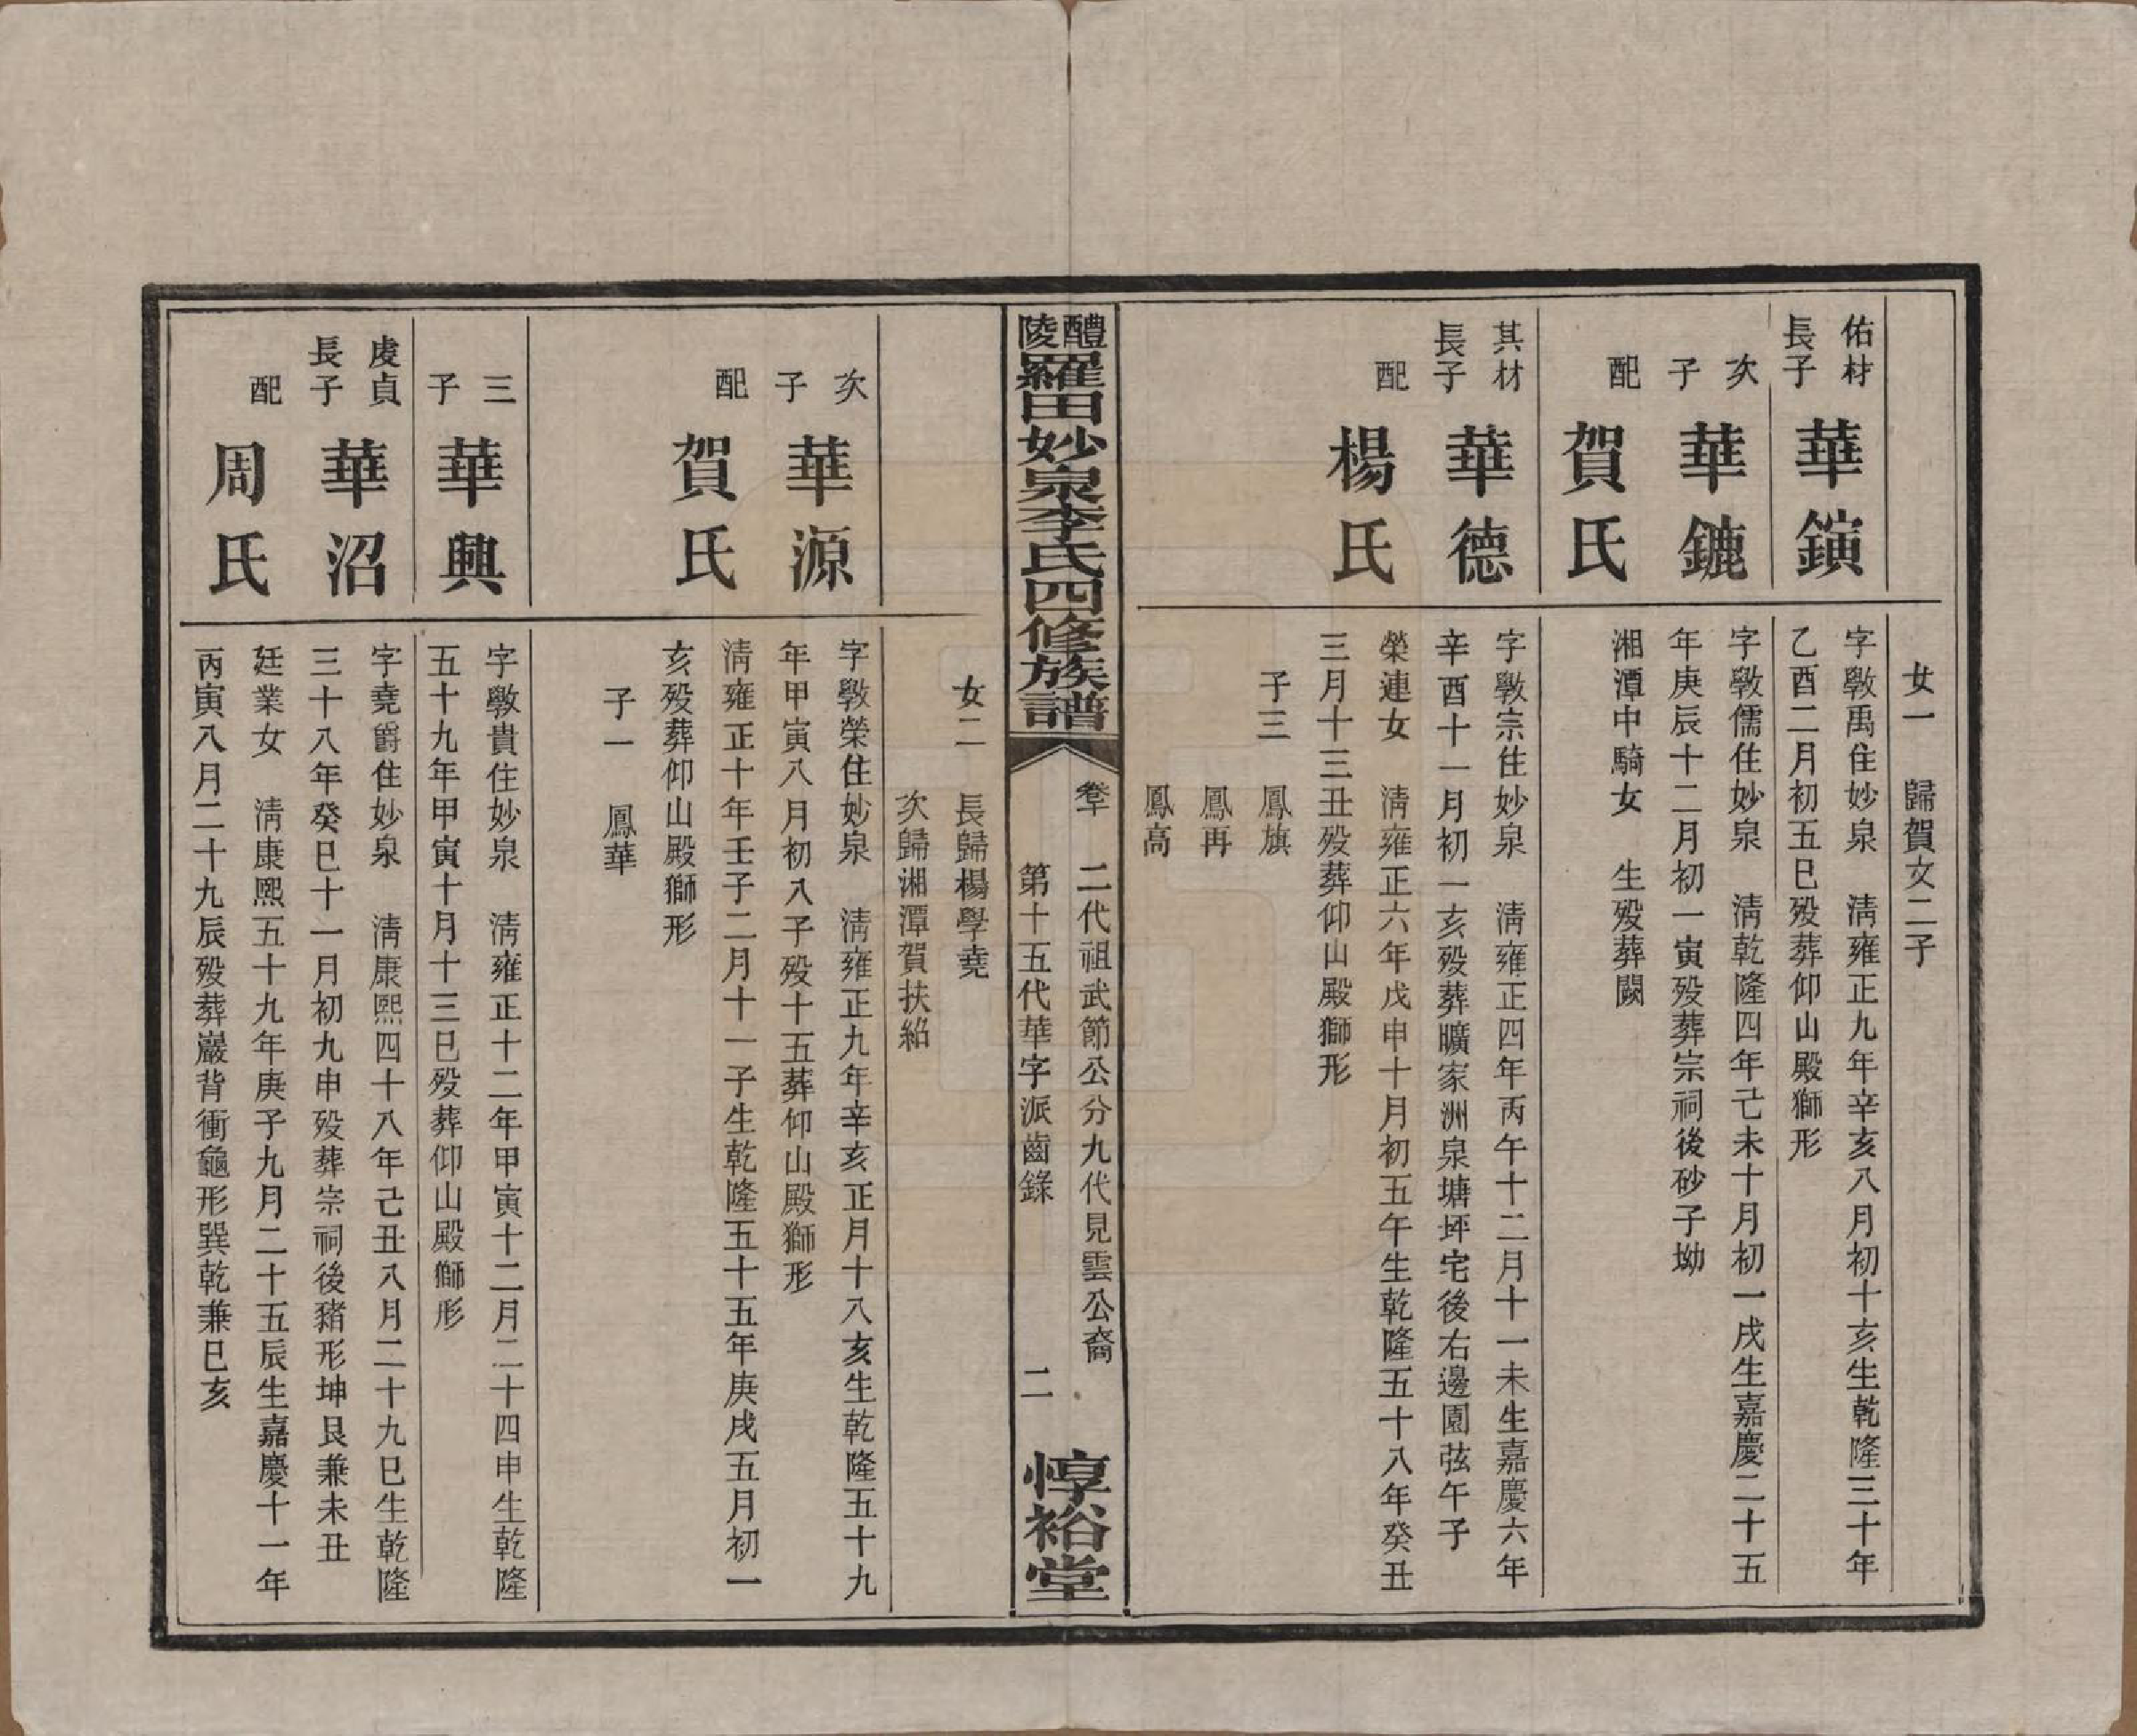 女一　歸賀文二子
佑材
長子
華鐄
字斆禹住妙泉　淸雍正九年辛亥八月初十亥生乾隆三十年
乙酉二月初五巳歿葬仰山殿獅形
次
子
華鑣
字斆儒住妙泉　淸乾隆四年己未十月初一戌生嘉慶二十五
年庚辰十二月初一寅歿葬宗祠後砂子坳
配
賀氏
湘潭中騎女　生歿葬闕
其材
長子
華德
字斆宗住妙泉　淸雍正四年丙午十二月十一未生嘉慶六年
辛酉十一月初一亥歿葬曠家洲泉塘坪宅後右邊園弦午子
配
楊氏
榮連女　淸雍正六年戊申十月初五午生乾隆五十八年癸丑
三月十三丑歿葬仰山殿獅形
子三　鳳旗
鳳再
鳳高
醴陵羅田妙泉李氏四修族譜
卷十　二代祖武節公分九代見雲公裔
第十五代華字派齒錄　二
惇裕堂
女二　長歸楊學堯
次歸湘潭賀扶紹
次
子
華源
字斆榮住妙泉　淸雍正九年辛亥正月十八亥生乾隆五十九
年甲寅八月初八子歿十五葬仰山殿獅形
配
賀氏
淸雍正十年壬子二月十一子生乾隆五十五年庚戌五月初一
亥歿葬仰山殿獅形
子一　鳳華
三
子
華興
字斆貴住妙泉　淸雍正十二年甲寅十二月二十四申生乾隆
五十九年甲寅十月十三巳歿葬仰山殿獅形
虔貞
長子
華沼
字堯爵住妙泉　淸康熙四十八年己丑八月二十九巳生乾隆
三十八年癸巳十一月初九申歿葬宗祠後豬形坤艮兼未丑
配
周氏
廷業女　淸康熙五十九年庚子九月二十五辰生嘉慶十一年
丙寅八月二十九辰歿葬巖背衝龜形巽乾兼巳亥